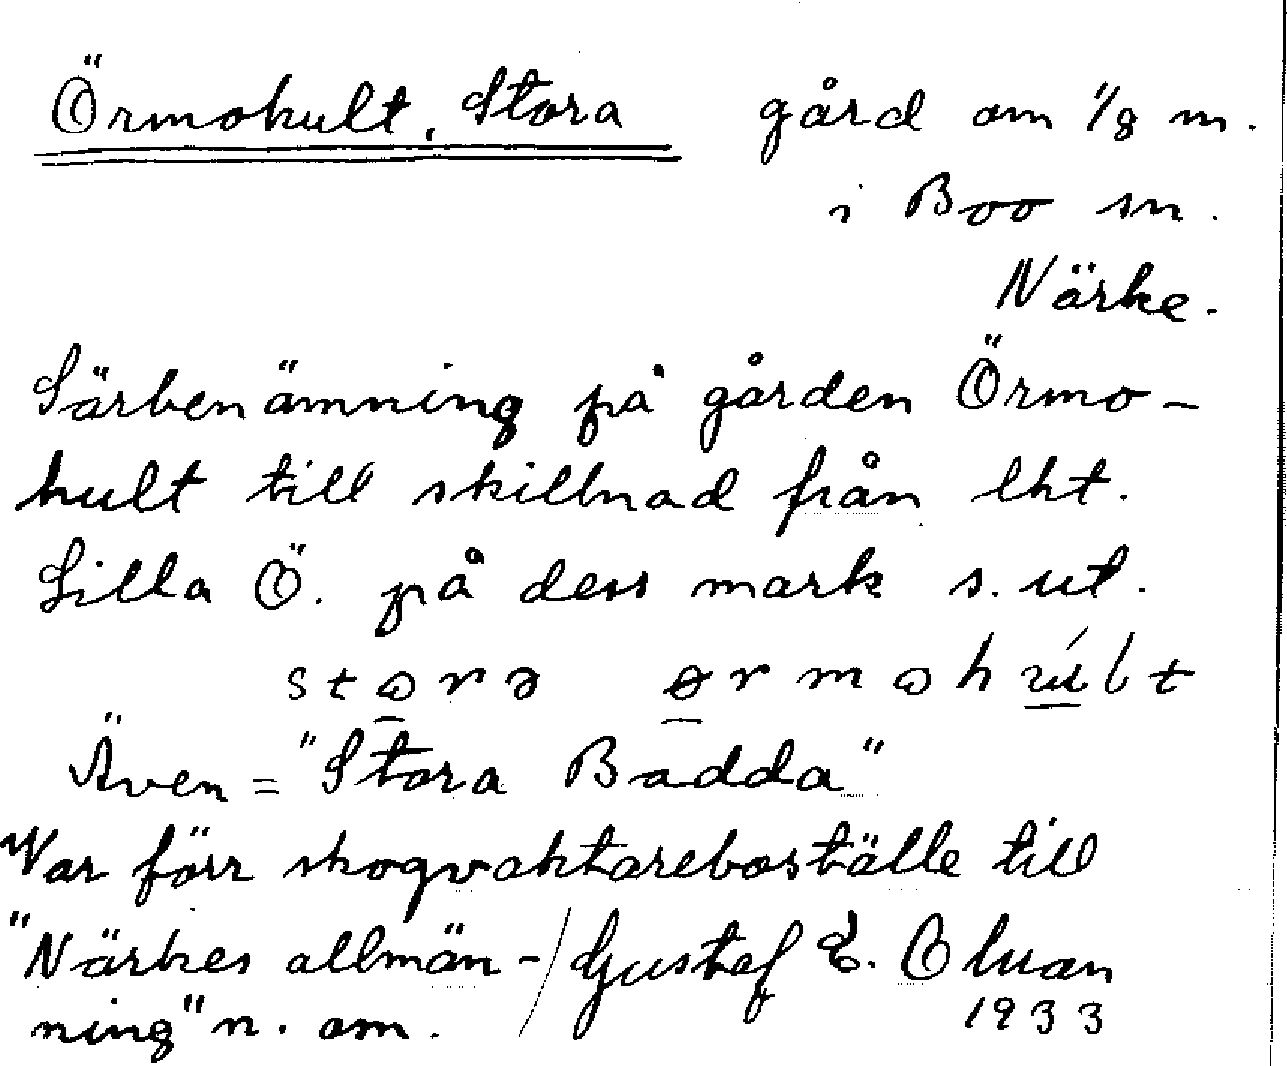 Örmohult, Stora gård om 1/8 m.
i Boo sn.
Närke.
Särbenämning på gården Örmo-
hult till skillnad från lht.
Lilla Ö. på dess mark s. ut.
Även = "Stora Badda"
Var förr skogvaktareboställe till
"Närkes allmän-/Gustaf E.
ning" n. om. 1933